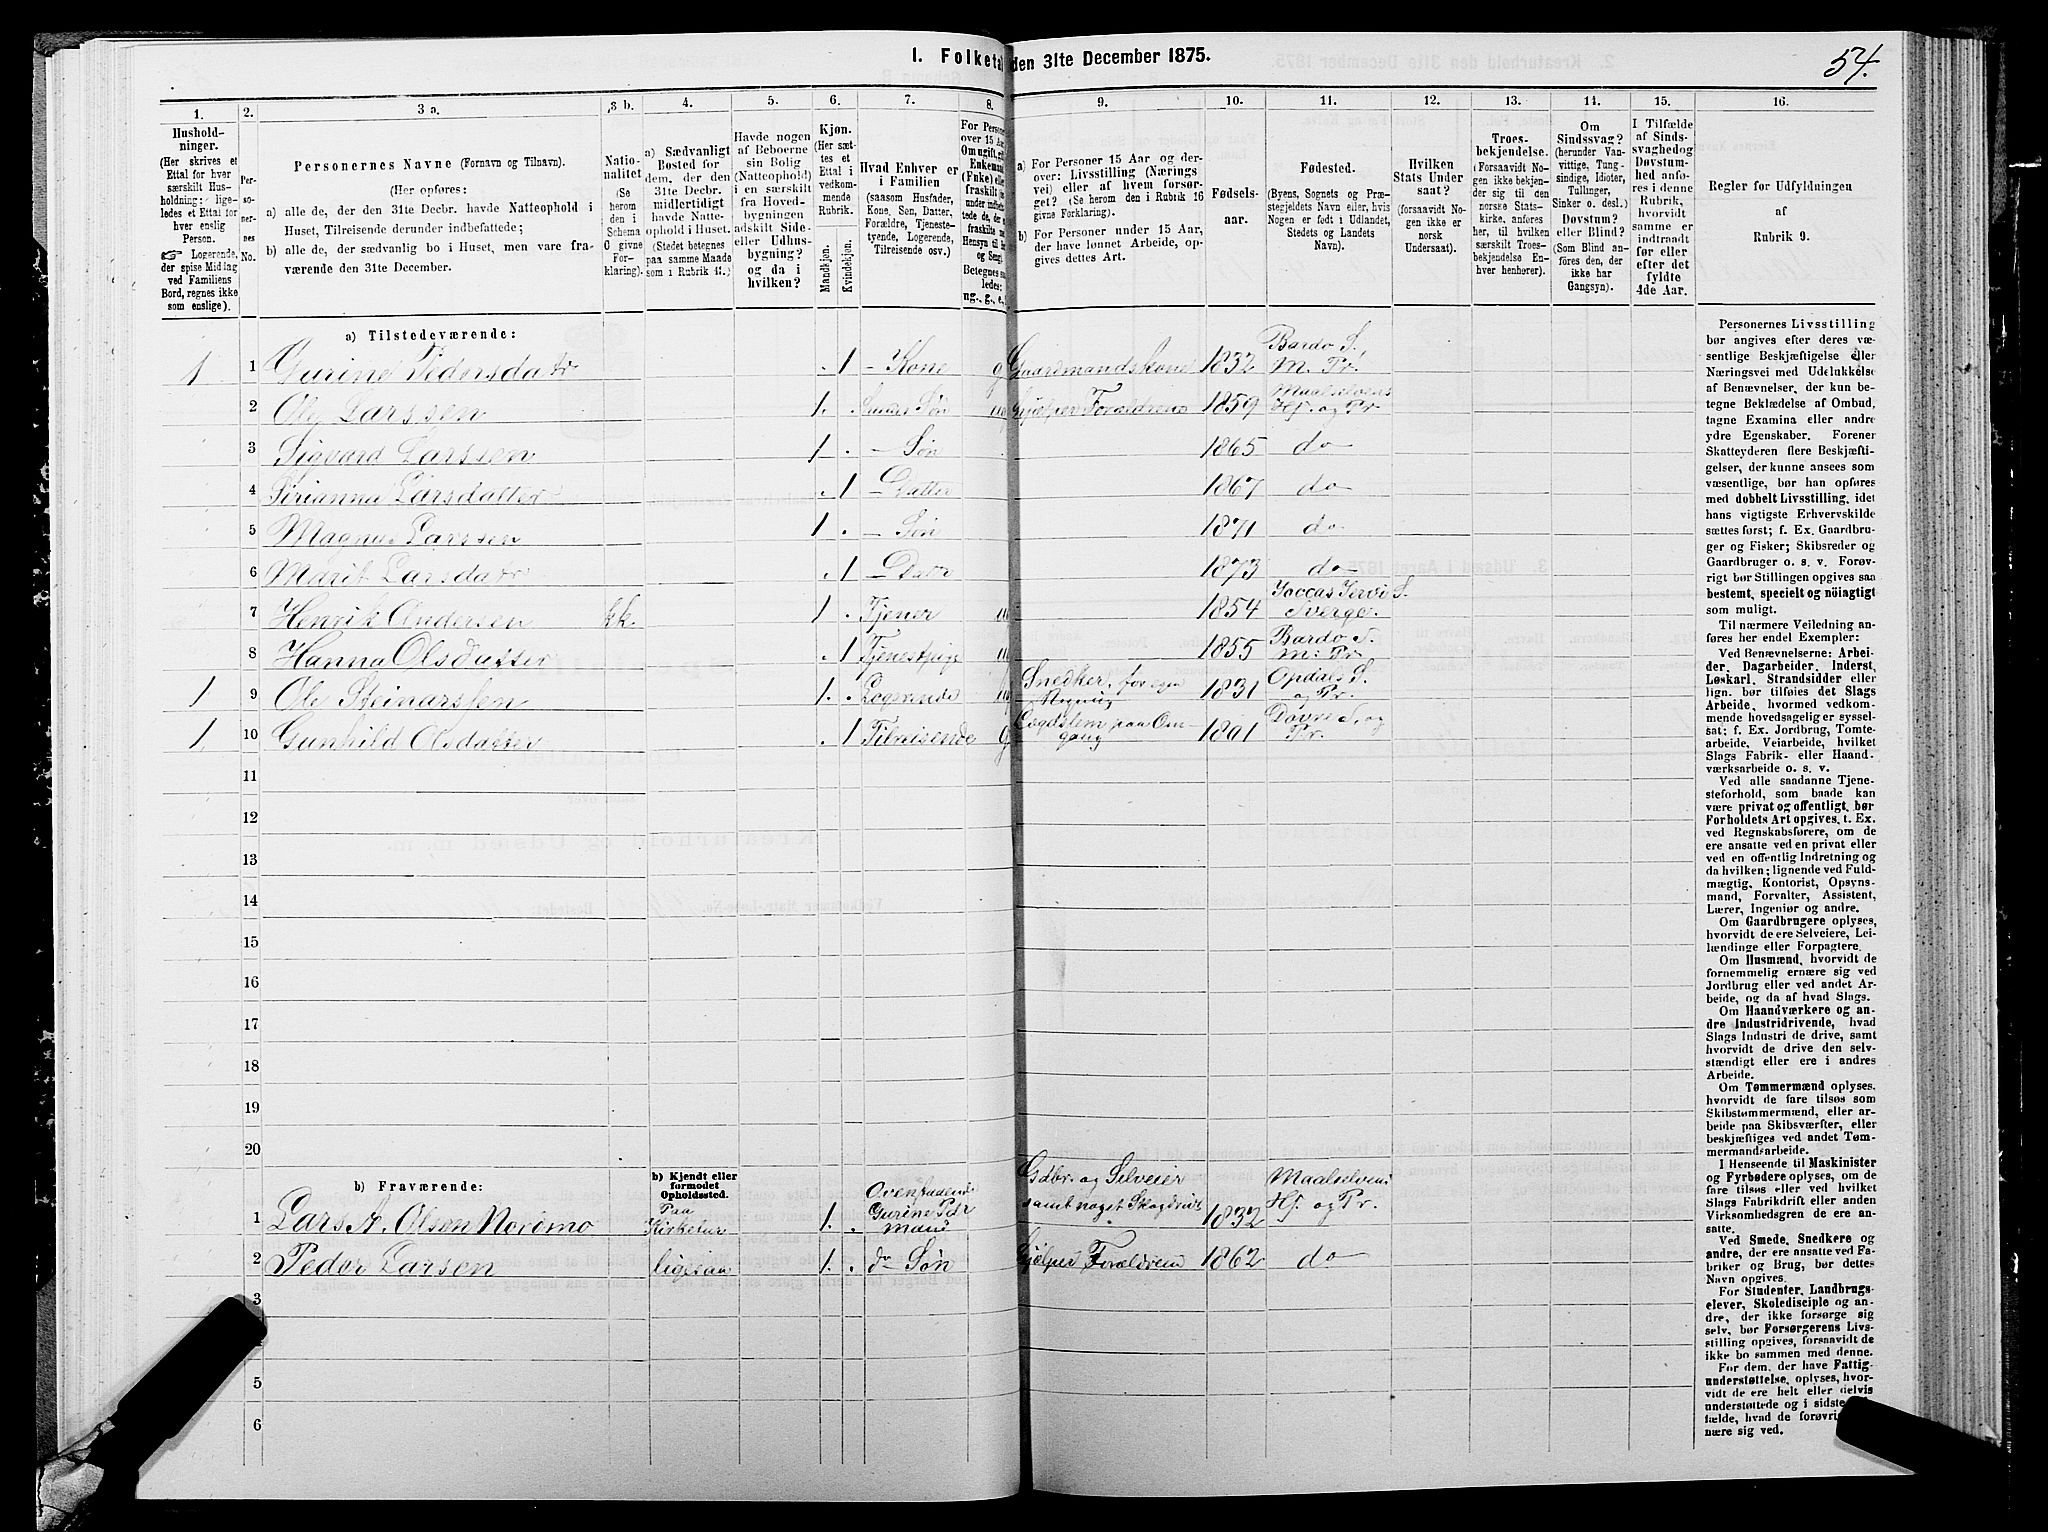 I. Folketal den 31te December 1875.
54.
1.
Hushold-
ninger.
(Her skrives et
Ettal for hver
særskilt Hus-
holdning; lige-
ledes et Ettal for
hver enslig
Person.
☞ Logerende,
der spise Middag
ved Familiens
Bord, regnes ikke
som enslige).
2.
Per-
so-
ner-
nes
No.
3 a.
Personernes Navne (Fornavn og Tilnavn).
(Her opføres:
a) alle de, der den 31te Decbr. havde Natteophold i
Huset, Tilreisende derunder indbefattede;
b) alle de, der sædvanlig bo i Huset, men vare fra-
værende den 31te December.
3 b.
Natio-
nalitet
(Se
herom
den i
Schema
C givne
For-
klaring).
4.
a) Sædvanligt
Bosted for
dem, der den
31te Decbr.
midlertidigt
havde Natte-
ophold i Huset.
(Stedet betegnes
paa samme Maade
som i Rubrik 11.)
5.
Havde nogen
af Beboerne
sin Bolig
(Natteophold)
i en særskilt
fra Hoved-
bygningen
adskilt Side-
eller Udhus-
bygning?
og da i
hvilken?
6.
Kjøn.
(Her sæt-
tes et
Ettal i
vedkom-
mende
Rubrik.
Mandkjøn.
Kvindekjøn.
7.
Hvad Enhver er
i Familien
(saasom Husfader,
Kone, Søn, Datter,
Forældre, Tjeneste-
tyende, Logerende,
Tilreisende osv.)
8.
For Personer
over 15 Aar:
Om ugift, gift,
Enkemand
(Enke) eller
fraskilt
ng., g., e.,
9.
a) For Personer 15 Aar og der-
over: Livsstilling (Nærings-
vei) eller af hvem forsør-
get? (Se herom den i Rubrik 16
givne Forklaring).
b) For Personer under 15 Aar,
der have lønnet Arbeide, op-
gives dettes Art.
10.
Fødsels-
aar.
11.
Fødested.
(Byens, Sognets og Præ-
stegjeldets Navn eller, hvis
Nogen er født i Udlandet,
Stedets og Landets
Navn).
12.
Hvilken
Stats Under
saat?
(forsaavidt No-
gen ikke er
norsk
Undersaat).
13.
Troes-
bekjendelse.
(Forsaavidt No-
gen ikke bekjen-
der sig til den
norske Stats-
kirke, anføres
her, til hvilken
særskilt Troes-
bekjendelse En-
hver henhører).
14.
Om
Sindssvag?
(herunder Van-
vittige, Tung-
sindige, Idioter,
Tullinger,
Sinker o. desl.)
Døvstum?
eller Blind?
(Som Blind an-
føres den, der
ikke har
Gangsyn).
15.
I Tilfælde
af Sinds-
svaghed og
Døvstum-
hed anføres
i denne
Rubrik,
hvorvidt
samme er
indtraadt
før eller
efter det
fyldte
4de Aar.
16.
Regler for Udfyldningen
af
Rubrik 9.
a) Tilstedeværende:
1 1 Gurine Pedersdatr 1 - Kone g Gaardmandskone 1832 Bardo S. M. Pr.
2 Ole Larssen 1. Søn ug Hjelper Forældrene 1859 Maalselvens Hf. og Pr.
3 Sigvard Larssen 1. - Søn 1865 do
4 Larsdatter 1 - Datter 1867 do
5 Magnus Larssen 1. - Søn 1871 do
6 Marit Larsdatr 1 - Datr 1873 do
7 Henrik Andersen kk. 1. Tjener ug 1854 S. Sverge.
8 Hanna Olsdatter 1 Tjenestpige ug 1855 Bardo S. M. Pr
1 9 Ole Steinarssen 1. Logerende ug Snedker, for egen Regning 1831 Opdals S. og Pr.
1 10 Gunhild Olsdatter 1 Tilreisende g Lægdslem paa Om- gang 1801 Dovre S. og Pr.
11
12
13
14
15
16
17
18
19
20
b) Fraværende:
b) Kjendt eller
formodet
Opholdssted.
1 Lars A. Olsen Nordmo Paa Kirketur 1. Ovenfadend: Gurine Pdr mand Gdbr. og Selveier samt noget Skogdrift 1832 Maalselvens Hf. og Pr.
2 Peder Larsen ligesaa 1. do Søn Hjelper Forældrene 1862 do
3
5
6
Personernes Livsstilling
bør angives efter deres væ-
sentlige Beskjæftigelse eller
Næringsvei med Udelukkelse
af Benævnelser, der kun be-
tegne Beklædelse af Ombud,
tagne Examina eller andre
ydre Egenskaber. Forener
Skatteyderen flere Beskjæfti-
gelser, der kunne ansees som
væsentlige, bør han opføres
med dobbelt Livsstilling, idet
hans vigtigste Erhvervskilde
sættes først; f. Ex. Gaardbru-
ger og Fisker; Skibsreder og
Gaardbruger o. s. v. Forøv-
rigt bør Stillingen opgives saa
bestemt, specielt og nöiagtigt
som muligt.
Til nærmere Veiledning an-
føres her endel Exempler:
Ved Benævnelserne: Arbei-
der, Dagarbeider, Inderst,
Løskarl, Strandsidder eller
lign. bør tilføies det Slags
Arbeide, hvormed vedkom-
mende hovedsagelig er syssel-
sat; f. Ex. Jordbrug, Tomte-
arbeide, Veiarbeide, hvilket
Slags Fabrik- eller Haand-
værksarbeide o. s. v.
Ved alle saadanne Tjene-
steforhold, som baade kan
være privat og offentligt, bør
Forholdets Art opgives, t. Ex.
ved Regnskabsførere, om de
ere ansatte ved en privat eller
ved en offentlig Indretning og
da hvilken; lignende ved Fuld-
mægtig, Kontorist, Opsyns-
mand, Forvalter, Assistent,
Lærer, Ingeniør og andre.
Om Gaardbrugere oplyses,
hvorvidt de ere Selveiere, Lei-
lændinge eller Forpagtere.
Om Husmænd, hvorvidt de
fornemmelig ernære sig ved
Jordbrug eller ved andet Ar-
beide, og da af hvad Slags.
Om Haandværkere og an-
dre Industridrivende, hvad
Slags Industri de drive, samt
hvorvidt de drive den selv-
stændigt eller ere i andres
Arbeide.
Om Tømmermænd oplyses,
hvorvidt de fare tilsøs som
Skibstømmermænd, eller ar-
beide paa Skibsværfter, eller
beskjæftiges ved andet Tøm-
mermandsarbeide.
I Henseende til Maskinister
og Fyrbødere oplyses, om de
fare tilsøs eller ved hvilket
Slags Fabrikdrift eller anden
Virksomhedsgren de ere an-
satte.
Ved Smede, Snedkere og
andre, der ere ansatte ved Fa-
briker og Brug, bør dettes
Navn opgives.
For Studenter, Landbrugs-
elever, Skoledisciple og an-
dre, der ikke forsørge sig
selv, bør Forsørgerens Livs-
stilling opgives, forsaavidt de
ikke bo sammen med denne.
For dem, der have Fattig-
understøttelse, oplyses, hvor-
vidt de ere helt eller delvis
understøttede og i sidste
fælde, hvad de forøvri
nære sig ved.